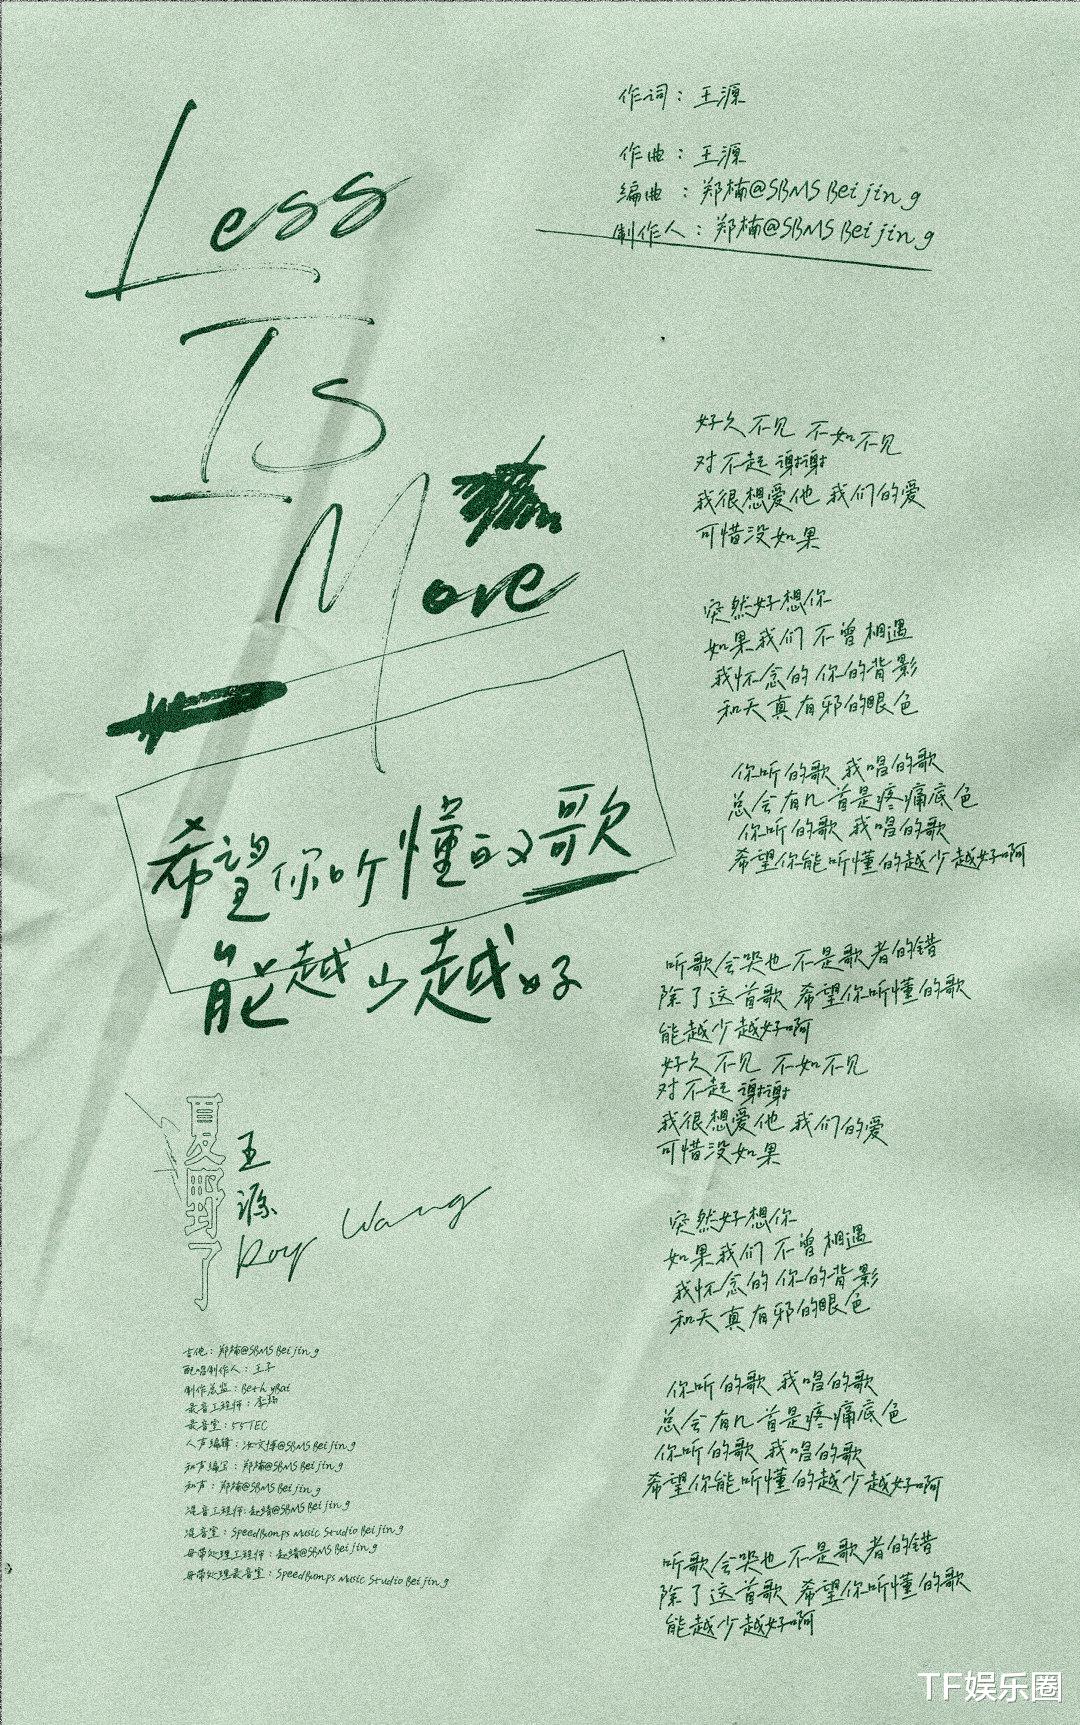 Less
Is
More
希望你听懂的歌
能越少越好
夏野了
王源
Roy Wang
吉他：郑楠@SBMS Beijing
配唱制作人：王子
制作总监：Beth yBai
录音工程师：李杨
录音室：55TEC
人声编辑：汝文博@SBMS Beijing
和声编写：郑楠@SBMS Beijing
和声：郑楠@SBMS Beijing
混音工程师：赵靖@SBMS Beijing
混音室：SpeedBumps Music Studio Beijing
母带处理工程师：赵靖@SBMS Beijing
母带处理录音室：SpeedBumps Music Studio Beijing
作词：王源
作曲：王源
编曲：郑楠@SBMS Beijing
制作人：郑楠@SBMS Beijing
好久不见 不如不见
对不起 谢谢
我很想爱他 我们的爱
可惜没如果
突然好想你
如果我们不曾相遇
我怀念的 你的背影
和天真有邪的眼色
你听的歌 我唱的歌
总会有几首是疼痛底色
你听的歌 我唱的歌
希望你能听懂的越少越好啊
听歌会哭也不是歌者的错
除了这首歌 希望你听懂的歌
能越少越好啊
好久不见 不如不见
对不起 谢谢
我很想爱他 我们的爱
可惜没如果
突然好想你
如果我们不曾相遇
我怀念的 你的背影
和天真有邪的眼色
你听的歌 我唱的歌
总会有几首是疼痛底色
你听的歌 我唱的歌
希望你能听懂的越少越好啊
听歌会哭也不是歌者的错
除了这首歌 希望你听懂的歌
能越少越好啊
TF娱乐圈